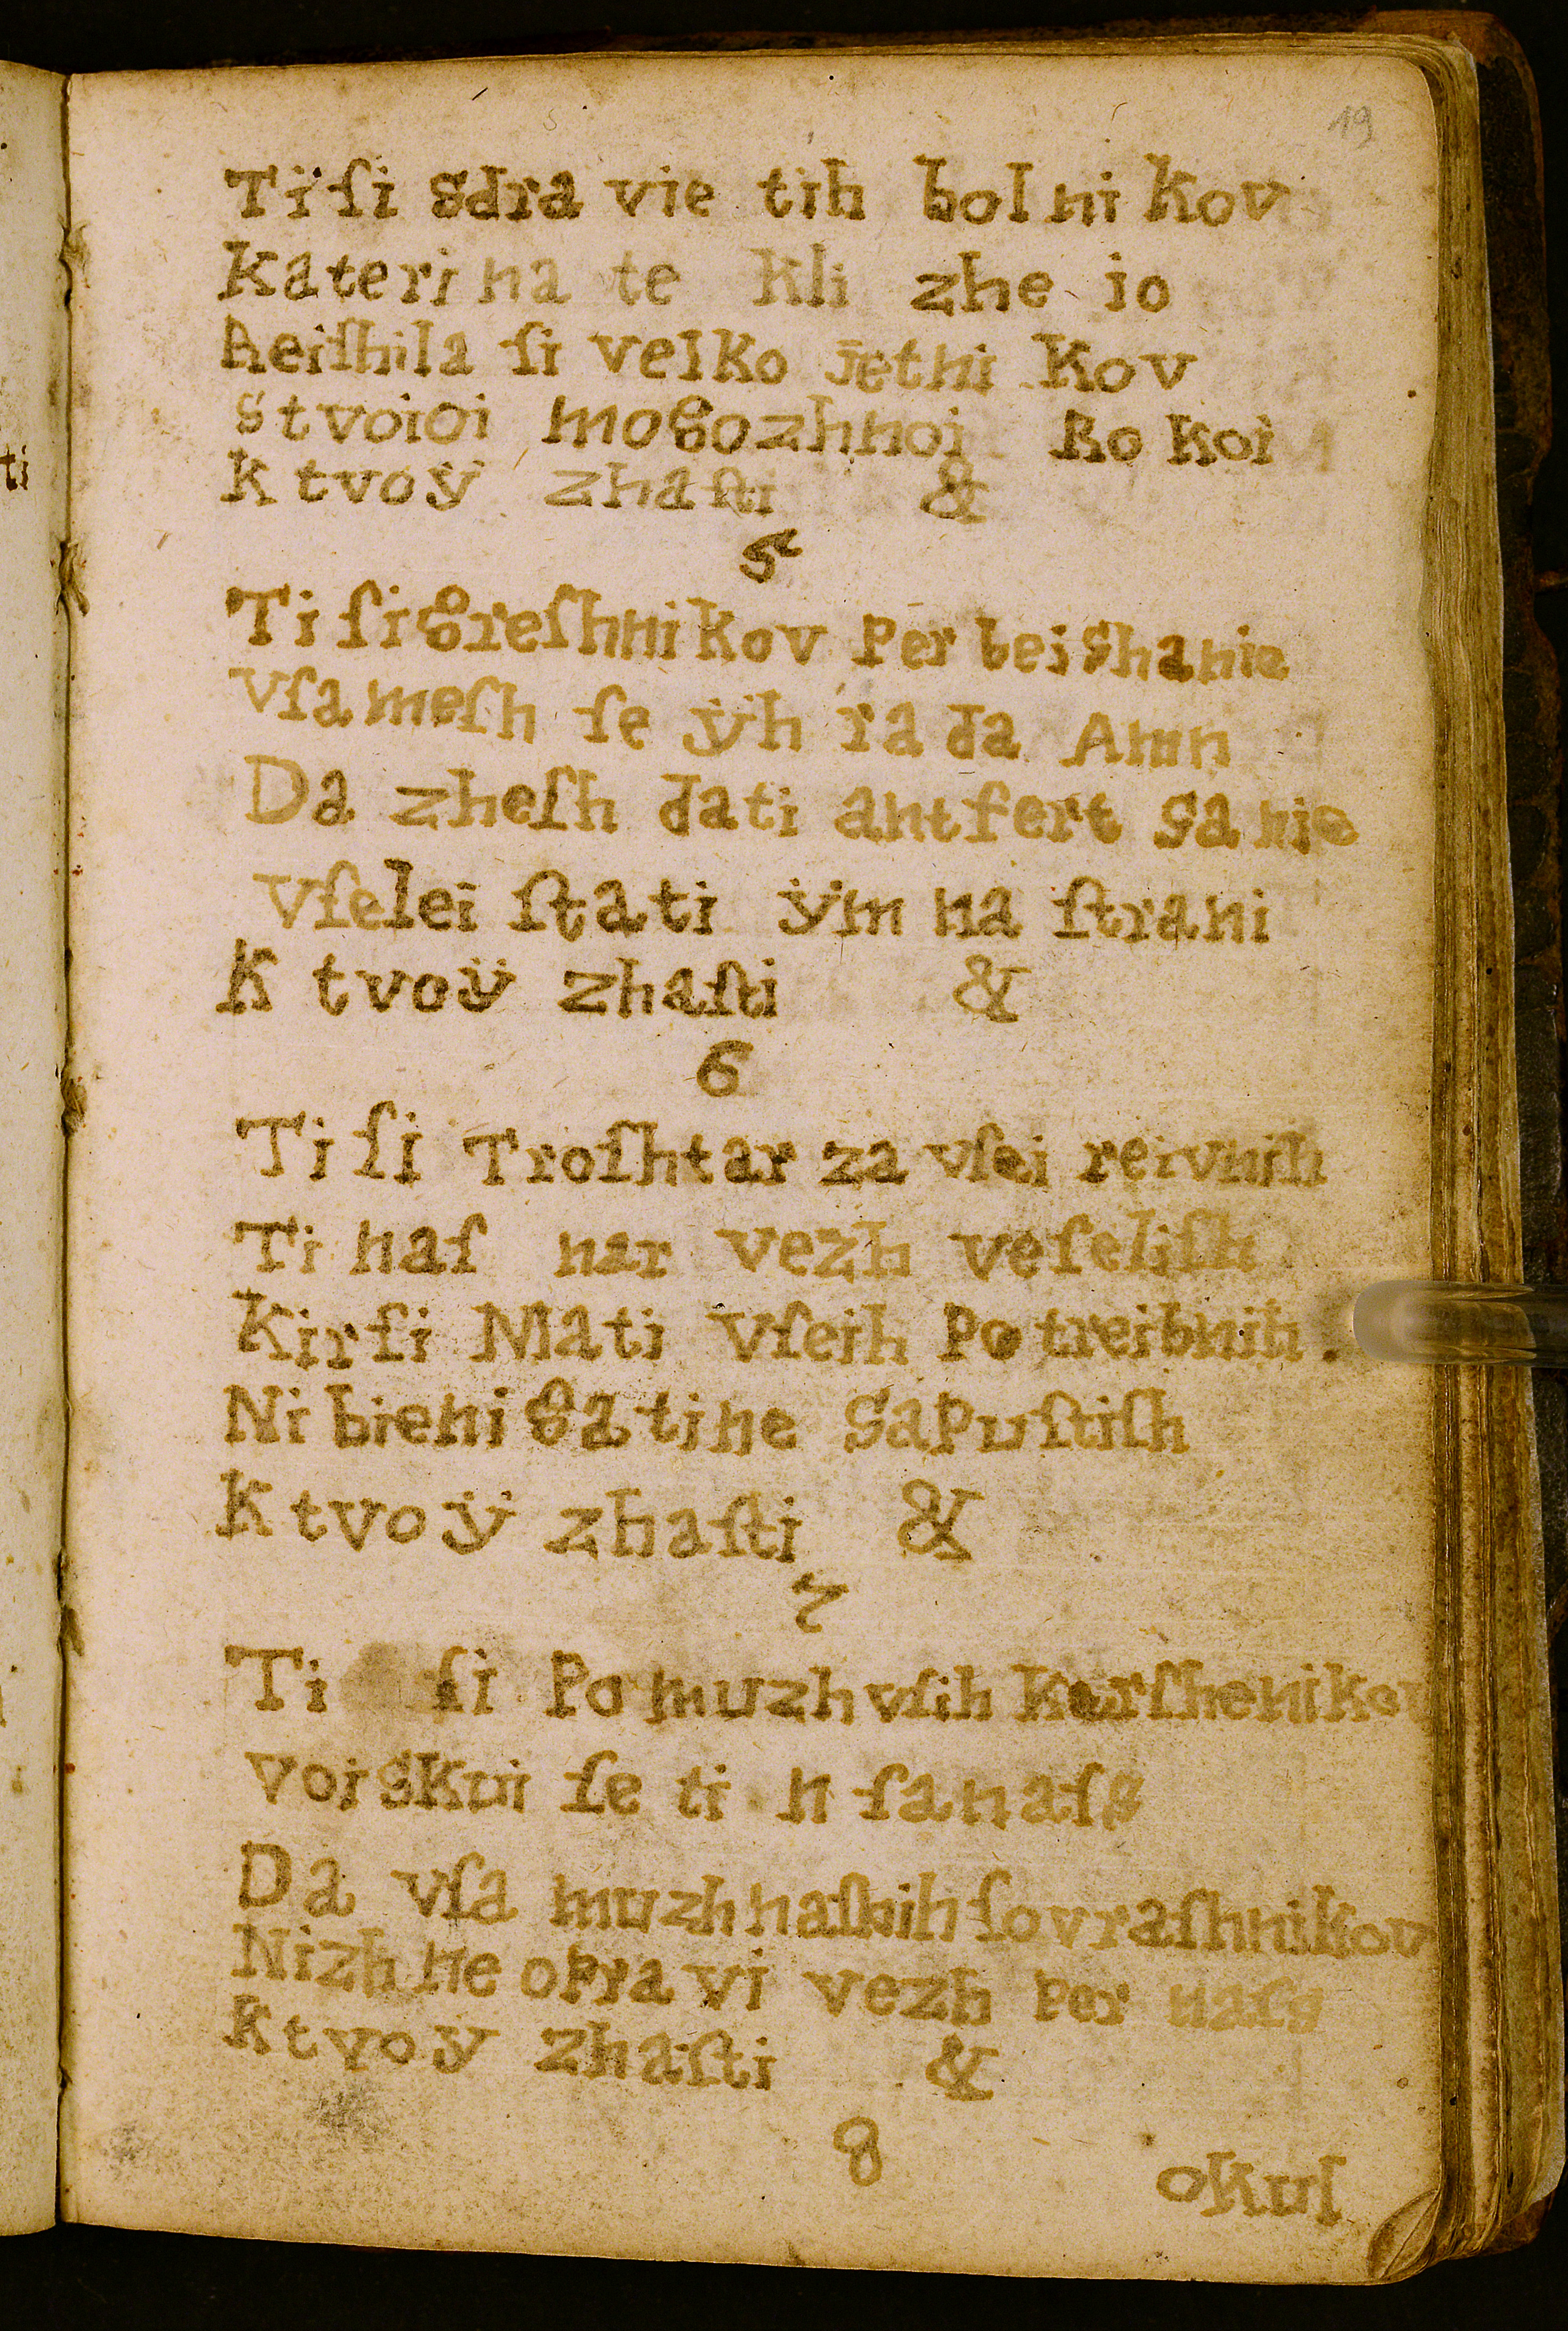 19
Ti ſi sdra vie tih bolni kov
Katerina te kli zhe io
Reiſhila ſi velko jethi kov
stvoioi mogozhnoi Rokoi
K tvoÿ zhaſti &
5
Ti ſi greſhnikov Perbeishanie
Vſa meſh ſe ÿh ra da Amn
Da zheſh dati antfert sanie
Vſelei ſtati ÿm na ſtrani
K tvoÿ zhaſti &
6
Ti ſi Troſhtar za vſei reivnih
Ti naſ nar vezh veſeliſh
Kirſi Mati Vſeih Potreibnih.
Ni bieni ga ti ne saPuſtiſh
K tvoÿ zhaſti &
7
Ti ſi Pomuzh vſih karſhenikov
Voiskui ſe ti n ſanaſs
Da vſa muzh naſhih ſovraſhnikov
Nizh ne oPravi vezh Per naſs
K tvoÿ zhaſti &
8
okul